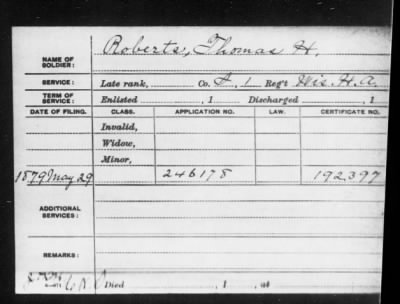 NAME OF SOLDIER: Roberts, Thomas H.
SERVICE: Late rank, Co. A, 1 Reg't Wis. H. A.
TERM OF SERVICE: Enlisted , 1 Discharged , 1
DATE OF FILING. CLASS. APPLICATION NO. LAW. CERTIFICATE NO.
Invalid,
Widow,
Minor,
1879 May 29 246178 192397
ADDITIONAL SERVICES:
REMARKS:
Died , 1 , at